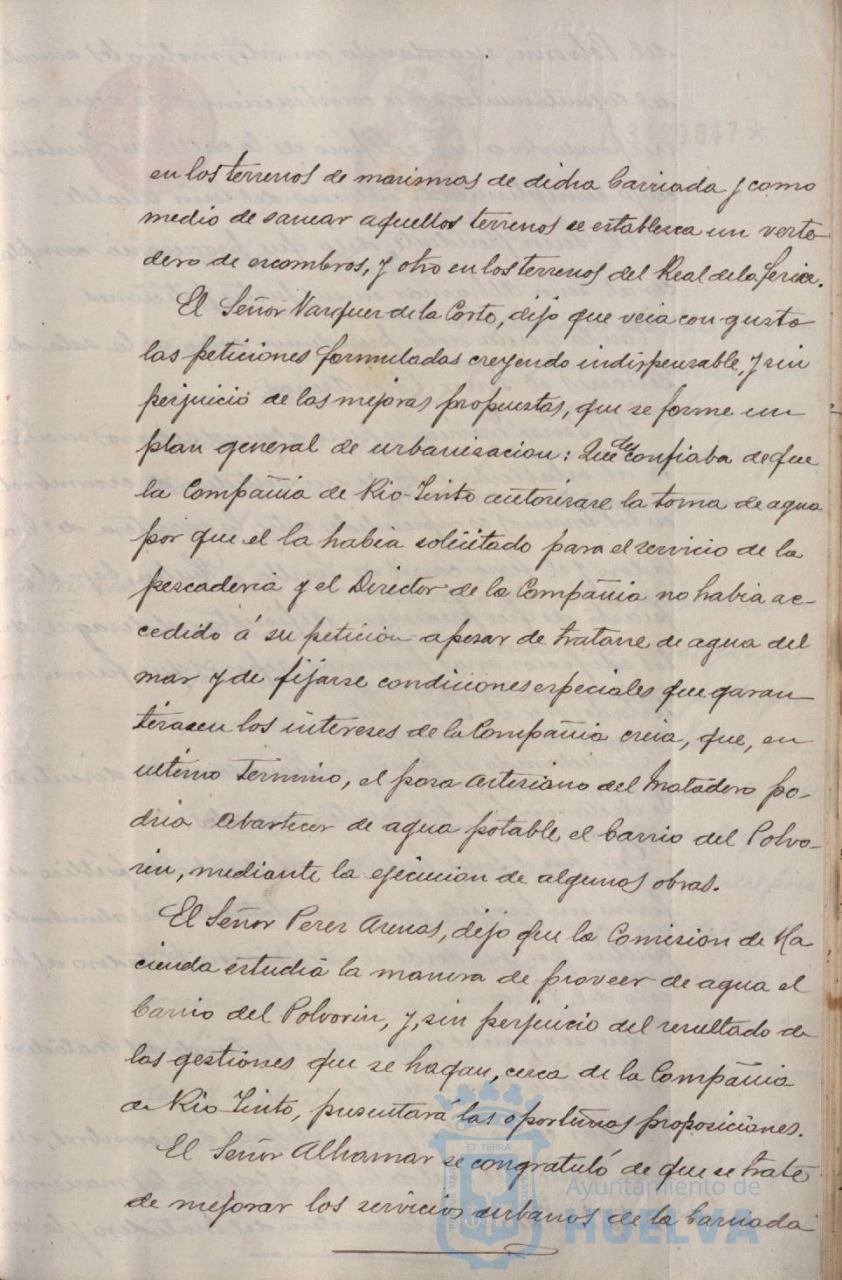 en los terrenos de marismas de dicha barriada y como
medio de sanear aquellos terrenos se establesca un verte-
dero de escombros, y otro en los terrenos del Real de la feria.
El Señor Vazquez de la Corte, dijo que veia con gusto
las peticiones formuladas creyendo indispensable, y sin
perjuicio de las mejoras propuestas, que se forme un
plan general de urbanizacion: Que desconfiaba de que
la Compañia de Rio-Tinto autorizase la toma de agua
por que el la habia solicitado para el servicio de la
pescaderia y el Director de la Compañia no habia ac-
cedido á su peticion apesar de tratarse de agua del
mar y de fijarse condiciones especiales que garan
tizasen los intereses de la Compañia creia, que, en
ultimo termino, el pozo artesiano del Matadero po-
dria abastecer de agua potable el barrio del Polvo-
rin, mediante la ejecucion de algunas obras.
El Señor Perez Arenas, dijo que la Comision de Ha
cienda estudiá la manera de proveer de agua el
barrio del Polvorin, y, sin perjuicio del resultado de
las gestiones que se hagan, cerca de la Compañia
de Rio Tinto, presentará las oportunas proposiciones.
El Señor Alhamar se congratuló de que se trate
de mejorar los servicios urbanos de la barriada
Ayuntamiento de
HUELVA